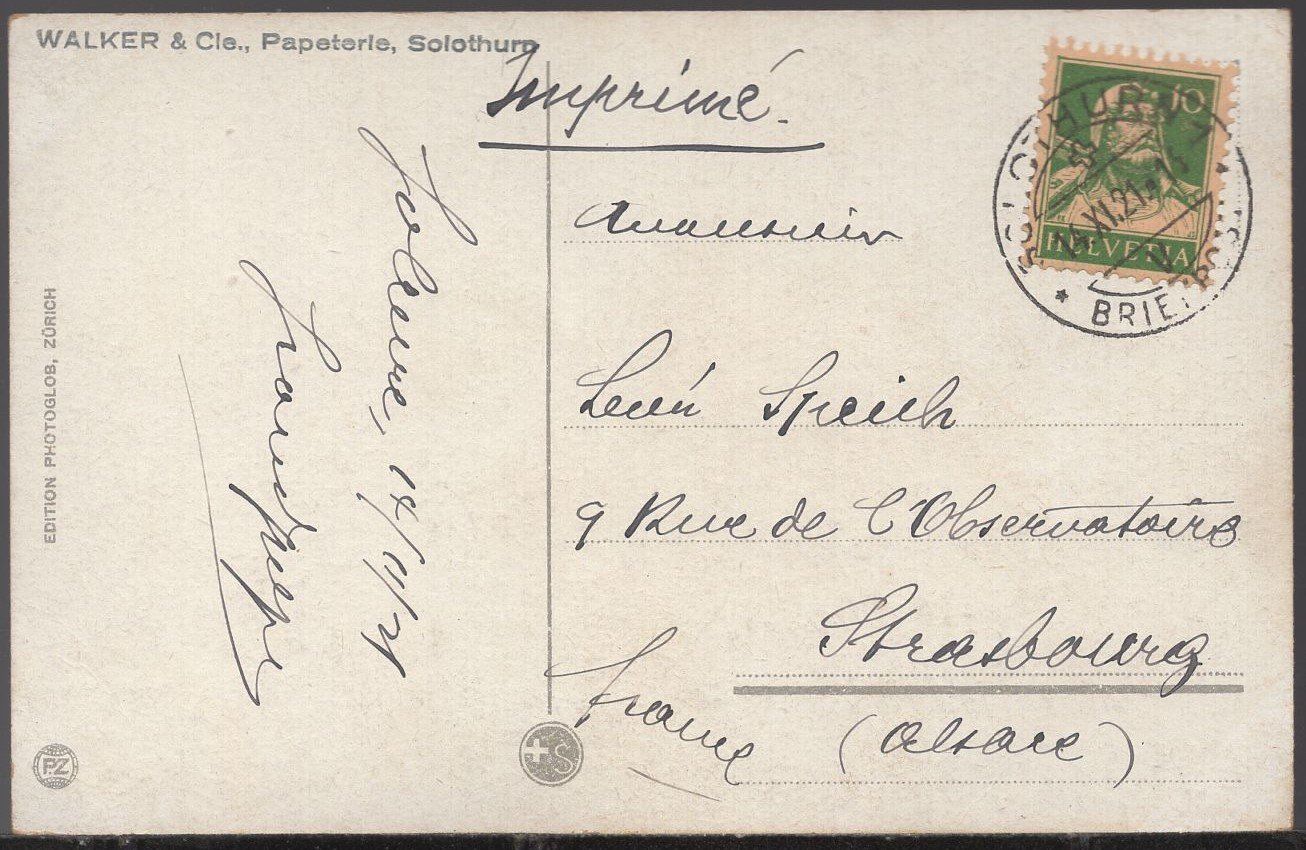 WALKER & Cie., Papeterie, Solothurn
Imprimé.
10
HELVETIA
SOLOTHURN
14.XI.21
BRIEFPOST
Soleure, 14/11/21
EDITION PHOTOGLOB, ZÜRICH
PZ
S
Monsieur
León Speich
9 Rue de l'Observatoire
Strasbourg
(Alsace)
France